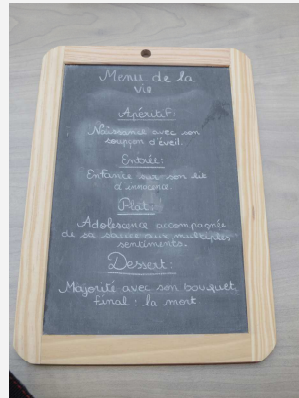 Menu de la
vie
Apéritif:
Naissance avec son
soupçon d'éveil.
Entrée:
Enfance sur son lit
d'innocence.
Plat:
Adolescence accompagnée
de sa sauce aux multiples
sentiments.
Dessert:
Majorité avec son bouquet
final: la mort.